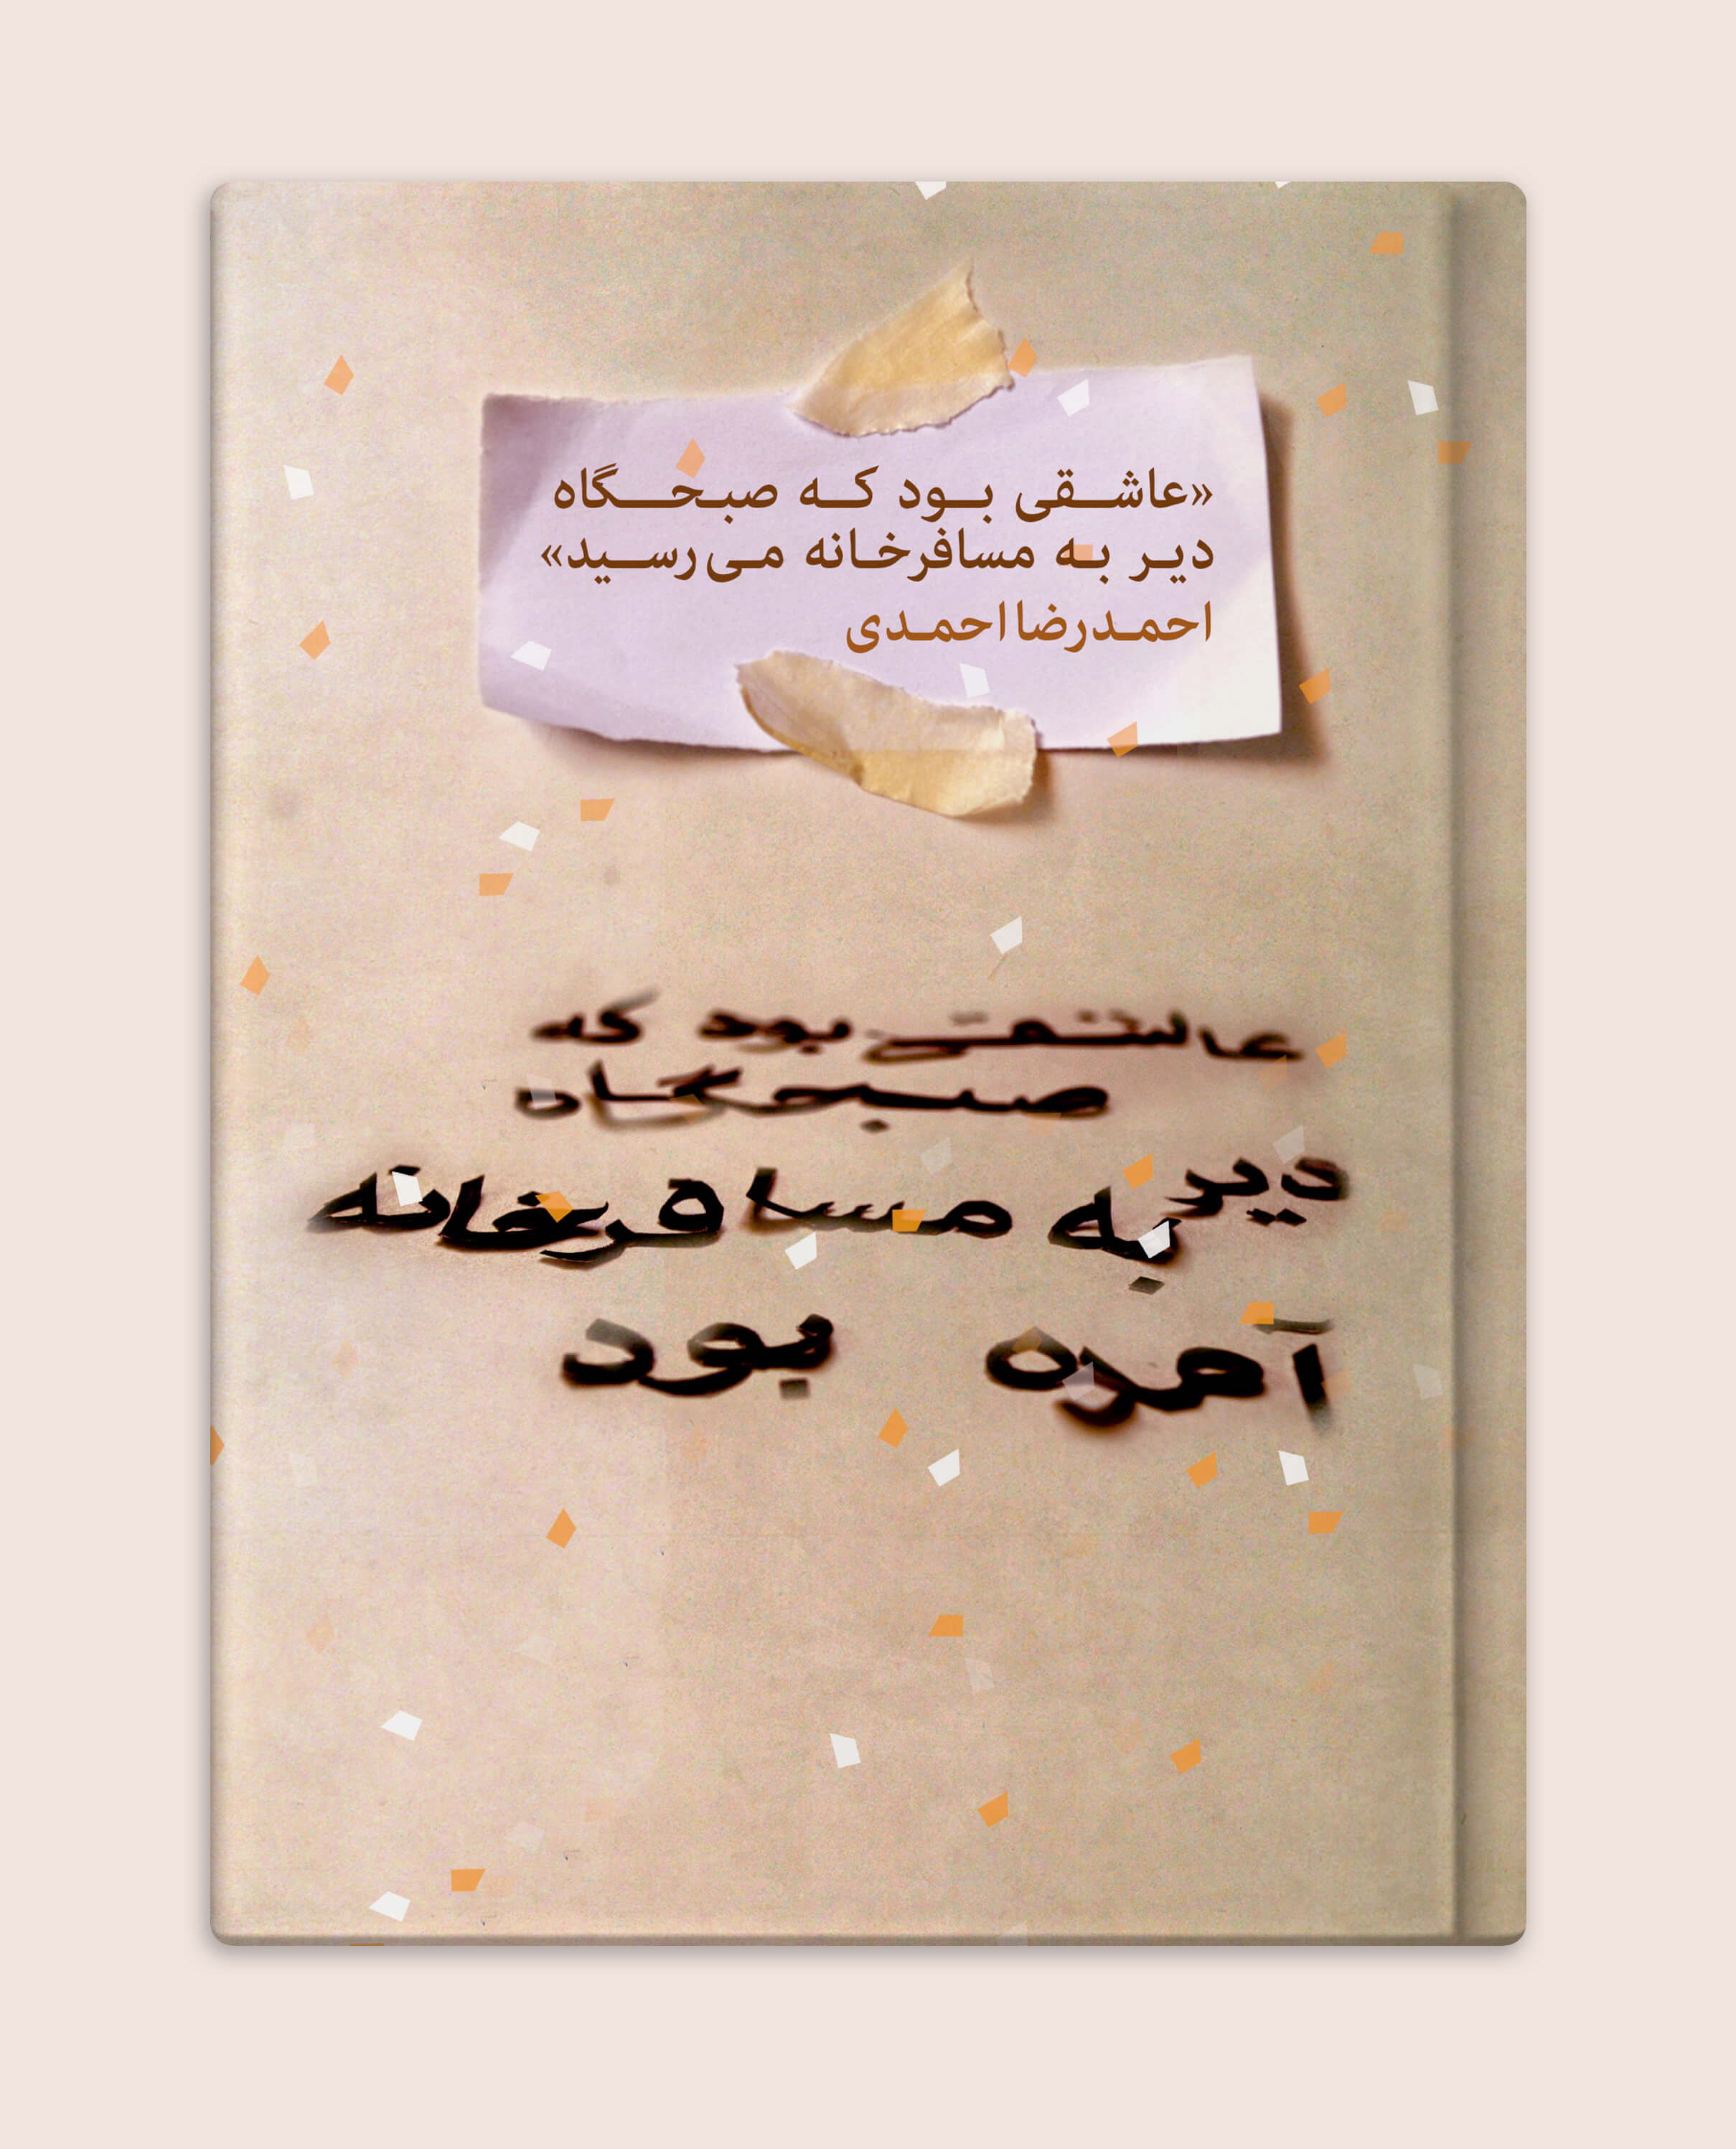 «عاشقی بود که صبحگاه
دیر به مسافرخانه می‌رسید»
احمدرضا احمدی
عاشقی بود که
صبحگاه
دیر به مسافرخانه
آمده بود